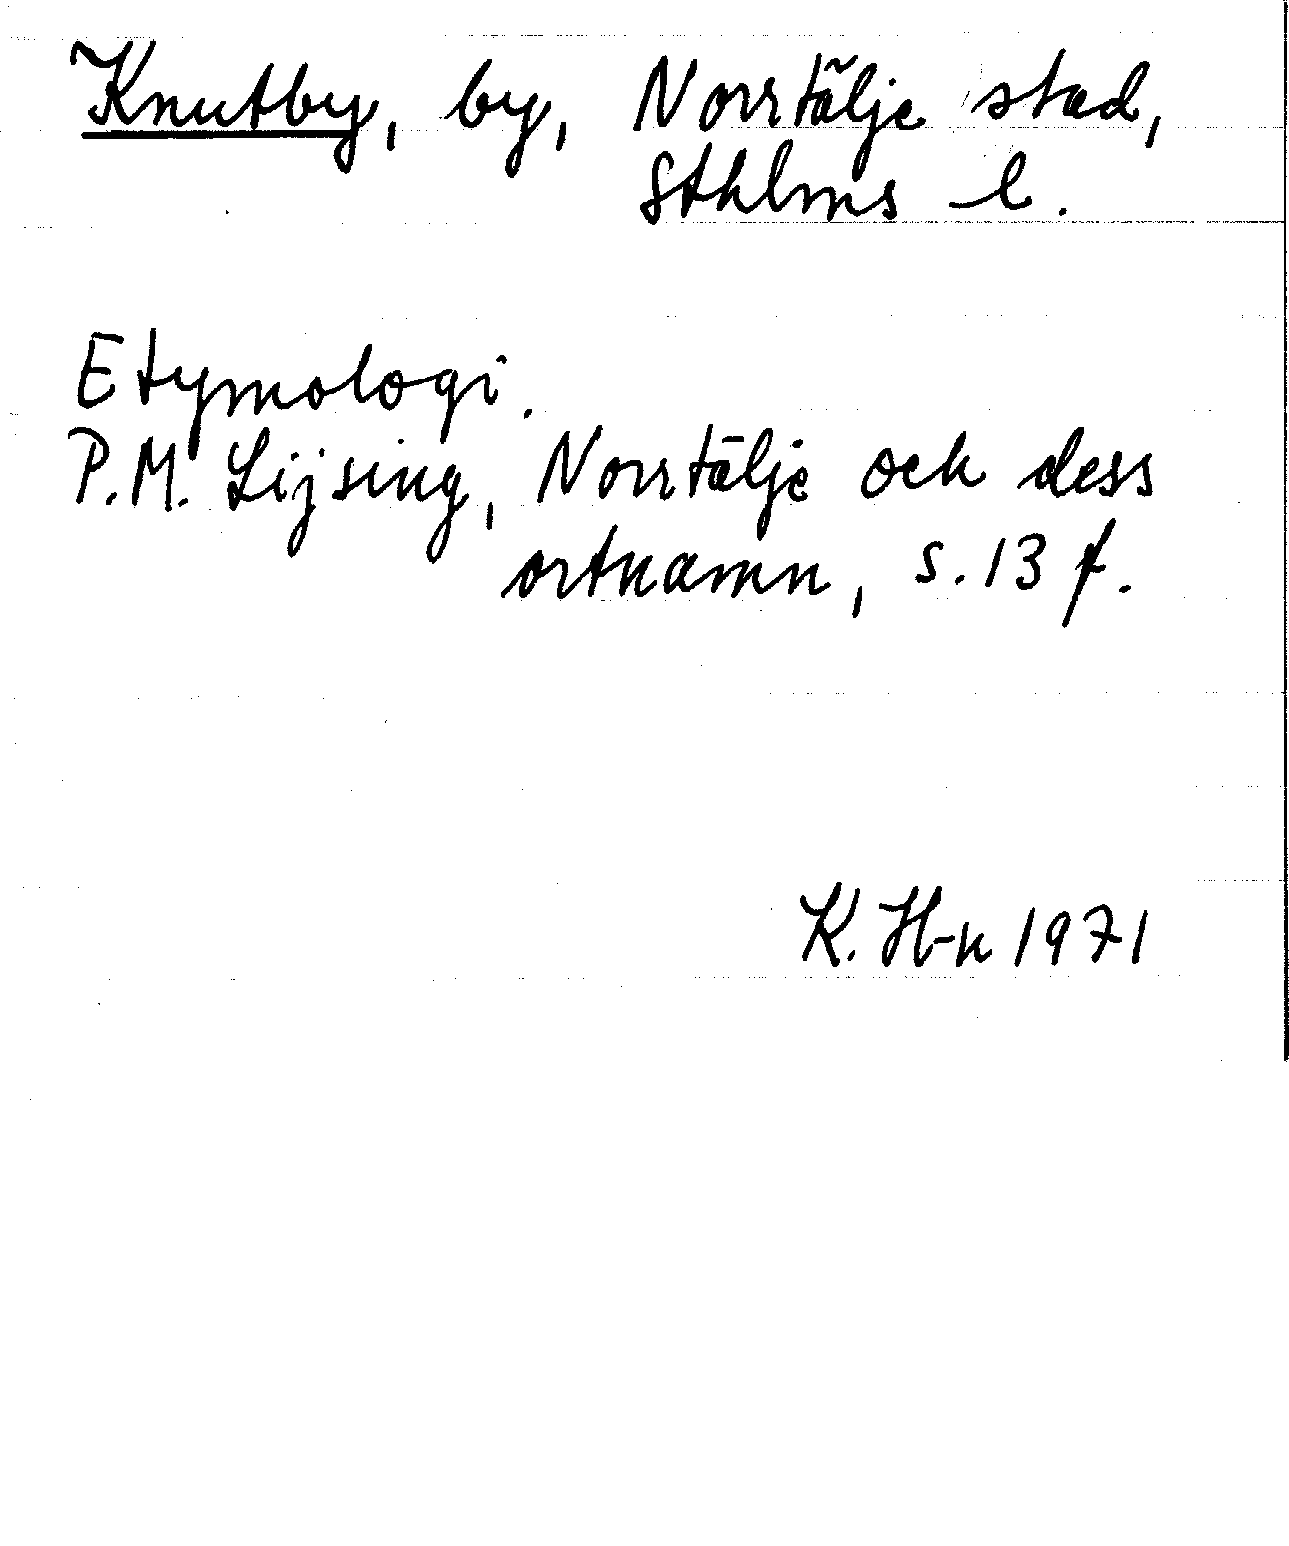 Knutby, by, Norrtälje stad,
Sthlms l.
Etymologi.
P.M. Lijsing, Norrtälje och dess
ortnamn, s. 13 f.
K. H-n 1971